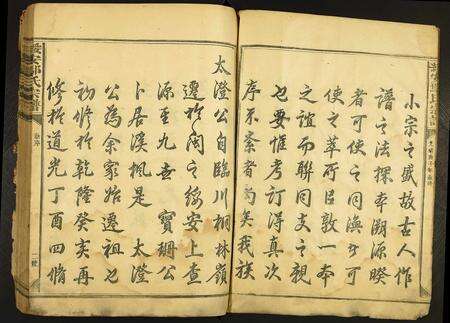 小宗之盛故古人作
譜之法探本溯源暌
者可使之同渙者可
使之萃所以敦一本
之誼而聯同支之親
也要惟考訂得真次
序不紊者為美我族
太澄公自臨川桐林嶺
遷於閩之綏安上查
源至九世寶珊公
卜居溪楓是太澄
公為余家始遷祖也
初修於乾隆癸亥再
修於道光丁酉四脩